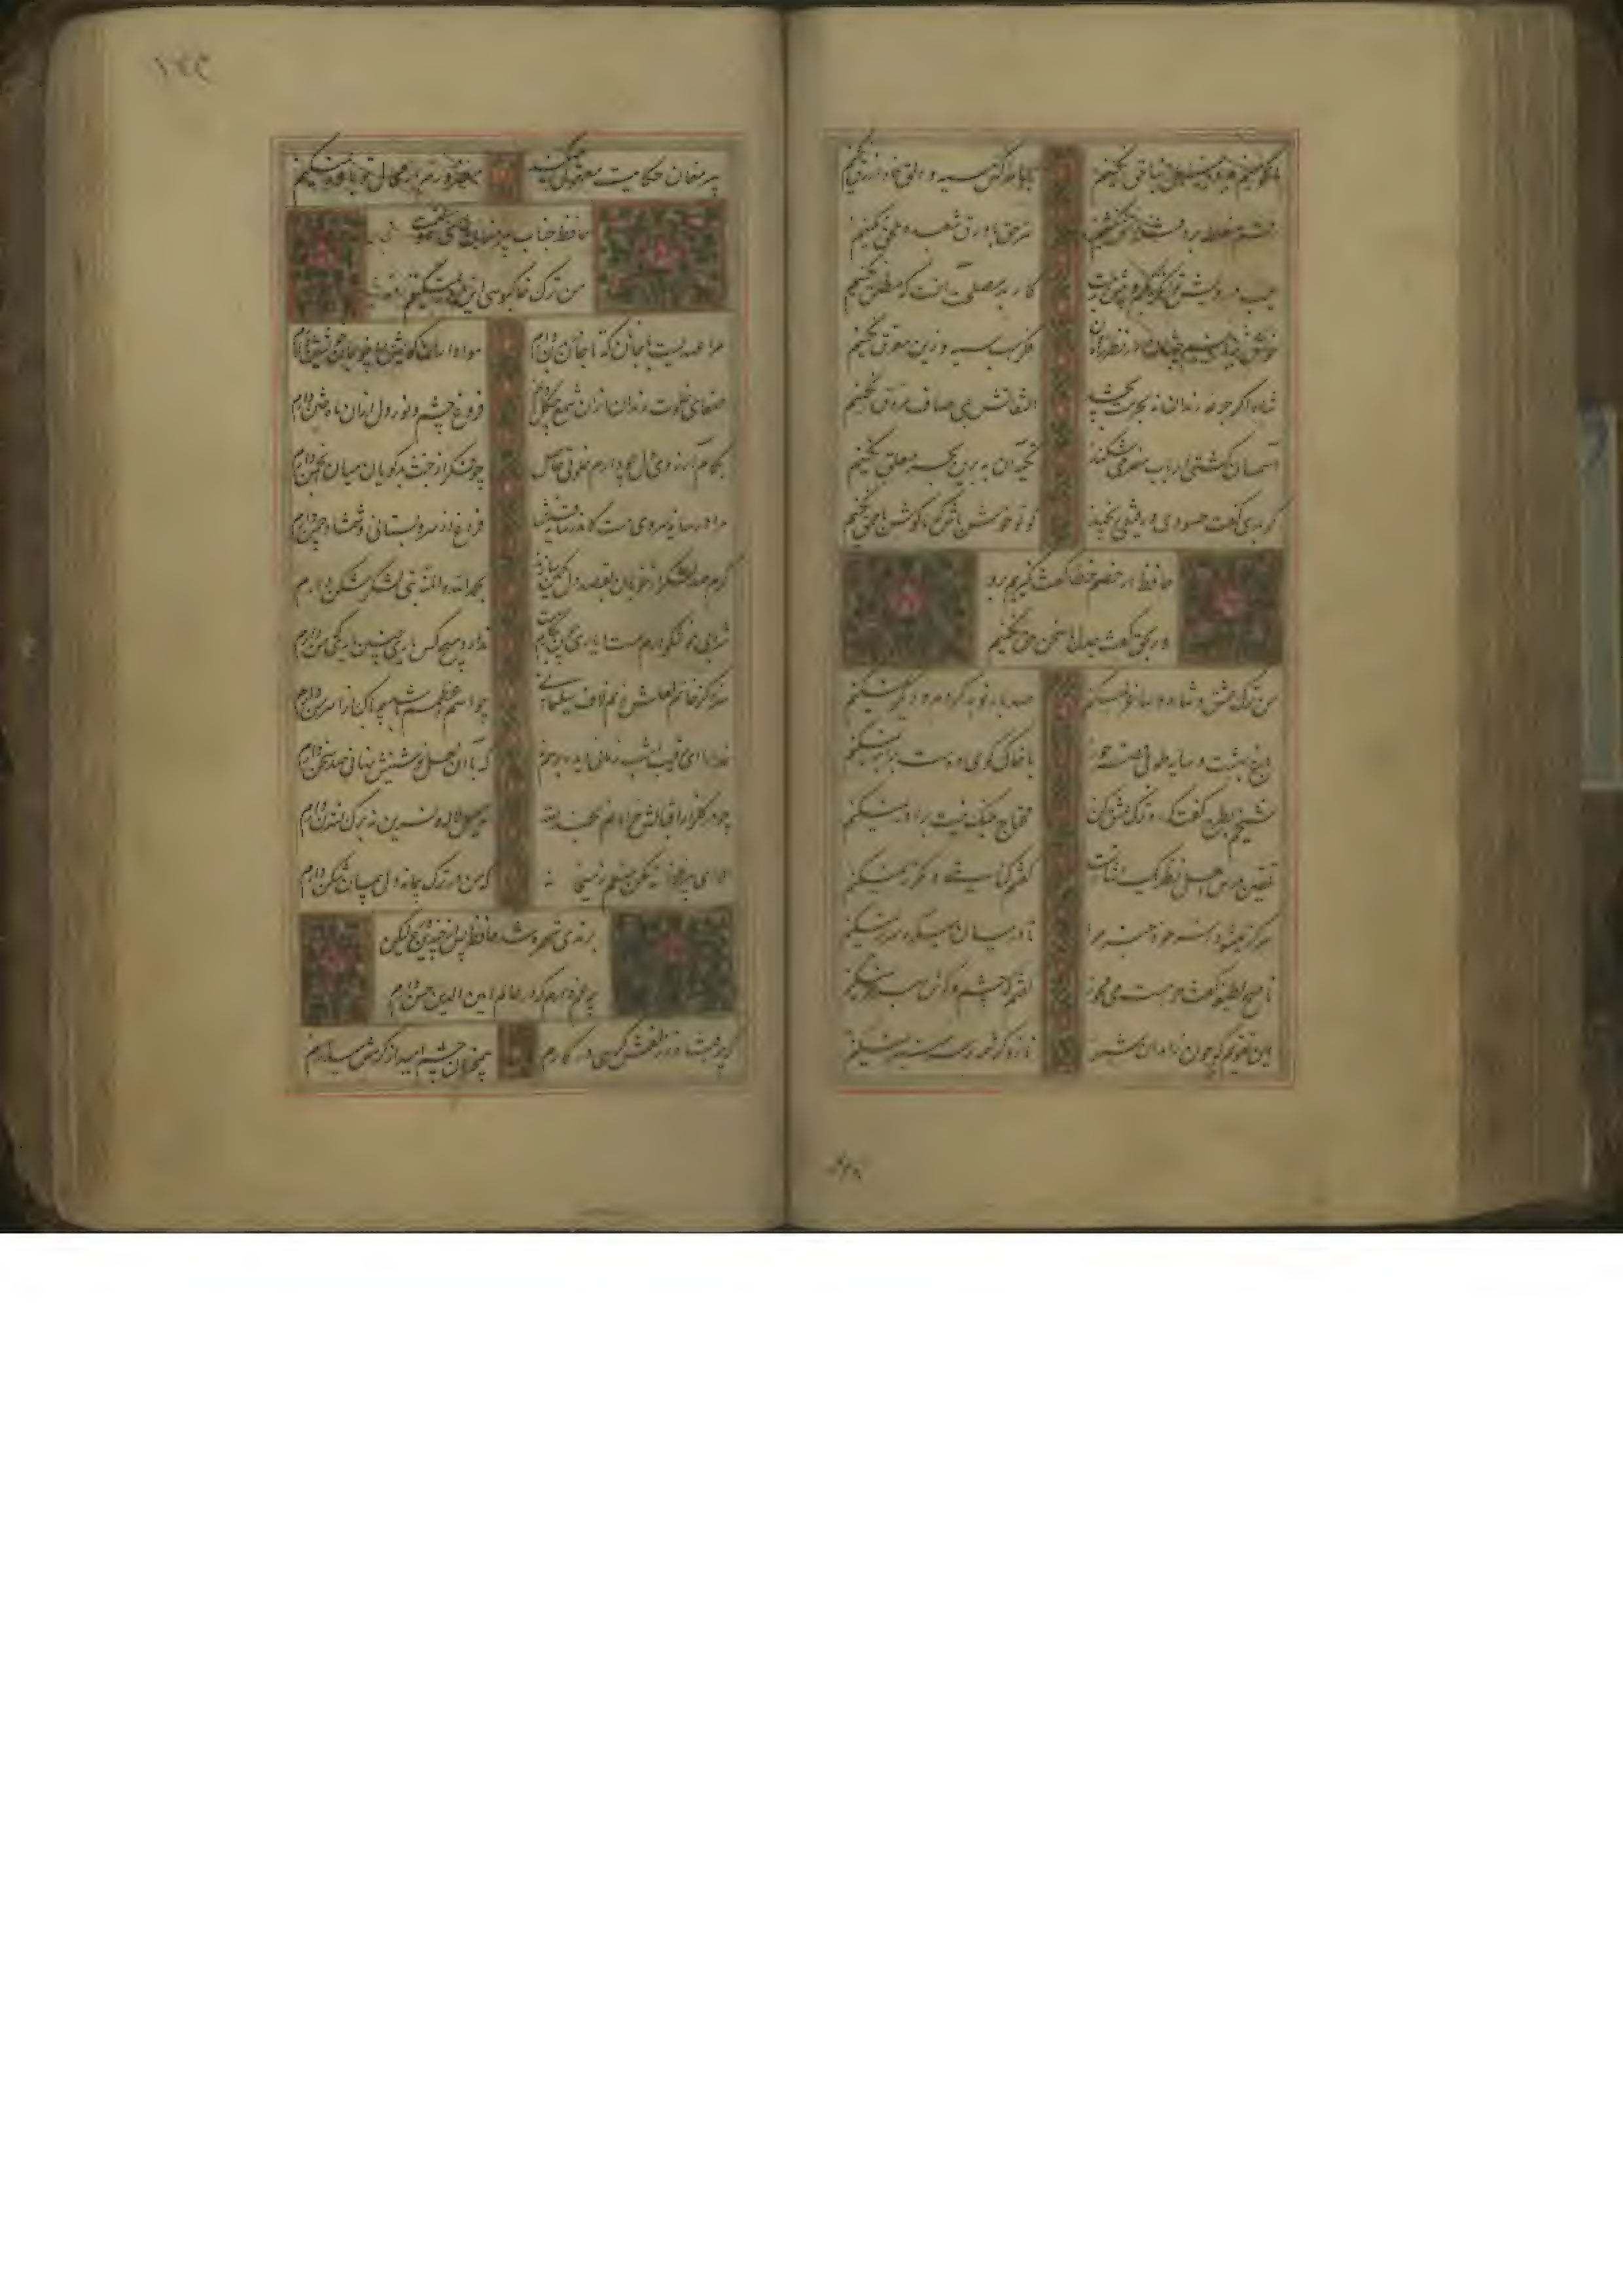 ما نگوییم بد و میل بناحق نکنیم جامه کس سیه و دلق خود ازرق نکنیم
رقم مغلطه بر دفتر دانش نکشیم سر حق با ورق شعبده ملحق نکنیم
عیب درویش و توانگر بکم و بیش بدست کار بد مصلحت آنست که مطلق نکنیم
خوش برانیم جهان در نظر راهروان فکر اسب سیه و زین مغرق نکنیم
شاه اگر جرعه رندان نه بحرمت نوشد التفاتش بمی صاف مروق نکنیم
آسمان کشتی ارباب هنر می‌شکند تکیه آن به که برین بحر معلق نکنیم
گر بدی گفت حسودی و رفیقی رنجید گو تو خوش باش که ما گوش باحمق نکنیم
حافظ ار خصم خطا گفت نگیریم برو
ور بحق گفت جدل با سخن حق نکنیم
من ترک عشق و شاهد و ساغر نمیکنم صد بار توبه کردم و دیگر نمیکنم
باغ بهشت و سایه طوبی و قصر حور با خاک کوی دوست برابر نمیکنم
شیخم بطیره گفت که رو ترک عشق کن محتاج جنگ نیست برادر نمیکنم
تلقین درس اهل نظر یک اشارتست گفتم کنایتی و مکرر نمیکنم
هرگز نمیشود ز سر خود خبر مرا تا در میان میکده سر بر نمیکنم
ناصح بطعنه گفت که می مخور گفتم بچشم و گوش بهر خر نمیکنم
این تقویم که چون زاهدان شهر ناز و کرشمه بر سر منبر نمیکنم
پیر مغان حکایت معقول میکند معذورم ار محال تو باور نمیکنم
حافظ جناب پیر مغان
من ترک خاکبوسی این در نمیکنم
مرا عهدیست با جانان که تا جان در بدن دارم هواداران کویش را چو جان خویشتن دارم
صفای خلوت خاطر از آن شمع چگل دارم فروغ چشم و نور دل از آن ماه ختن دارم
بکام و آرزوی دل چو دارم خلوتی حاصل چه فکر از خبث بدگویان میان انجمن دارم
مرا در خانه سروی هست کاندر سایه قدش فراغ از سرو بستانی و شمشاد چمن دارم
گرم صد لشکر از خوبان بقصد دل کمین سازند بحمدالله و المنه بتی لشکرشکن دارم
شرابی خوشگوارم هست و یاری چون نگارم هست ندارد هیچ کس یاری چنین یاری که من دارم
سزد کز خاتم لعلش زنم لاف سلیمانی چو اسم اعظمم باشد چه باک از اهرمن دارم
خدا را ای رقیب امشب زمانی دیده بر هم نه که با آن لعل خاموشش نهانی صد سخن دارم
چو در گلزار اقبالش خرامانم بحمدالله نه میل لاله و نسرین نه برگ نسترن دارم
الا ای پیر فرزانه مکن منعم ز میخانه که من در ترک پیمانه دلی پیمان‌شکن دارم
برندی شهره شد حافظ پس از چندین ورع لیکن
چه غم دارم که در عالم امین الدین حسن دارم
گرچه افتاد ز زلفش گرهی در کارم همچنان چشم امید از کرمش میدارم